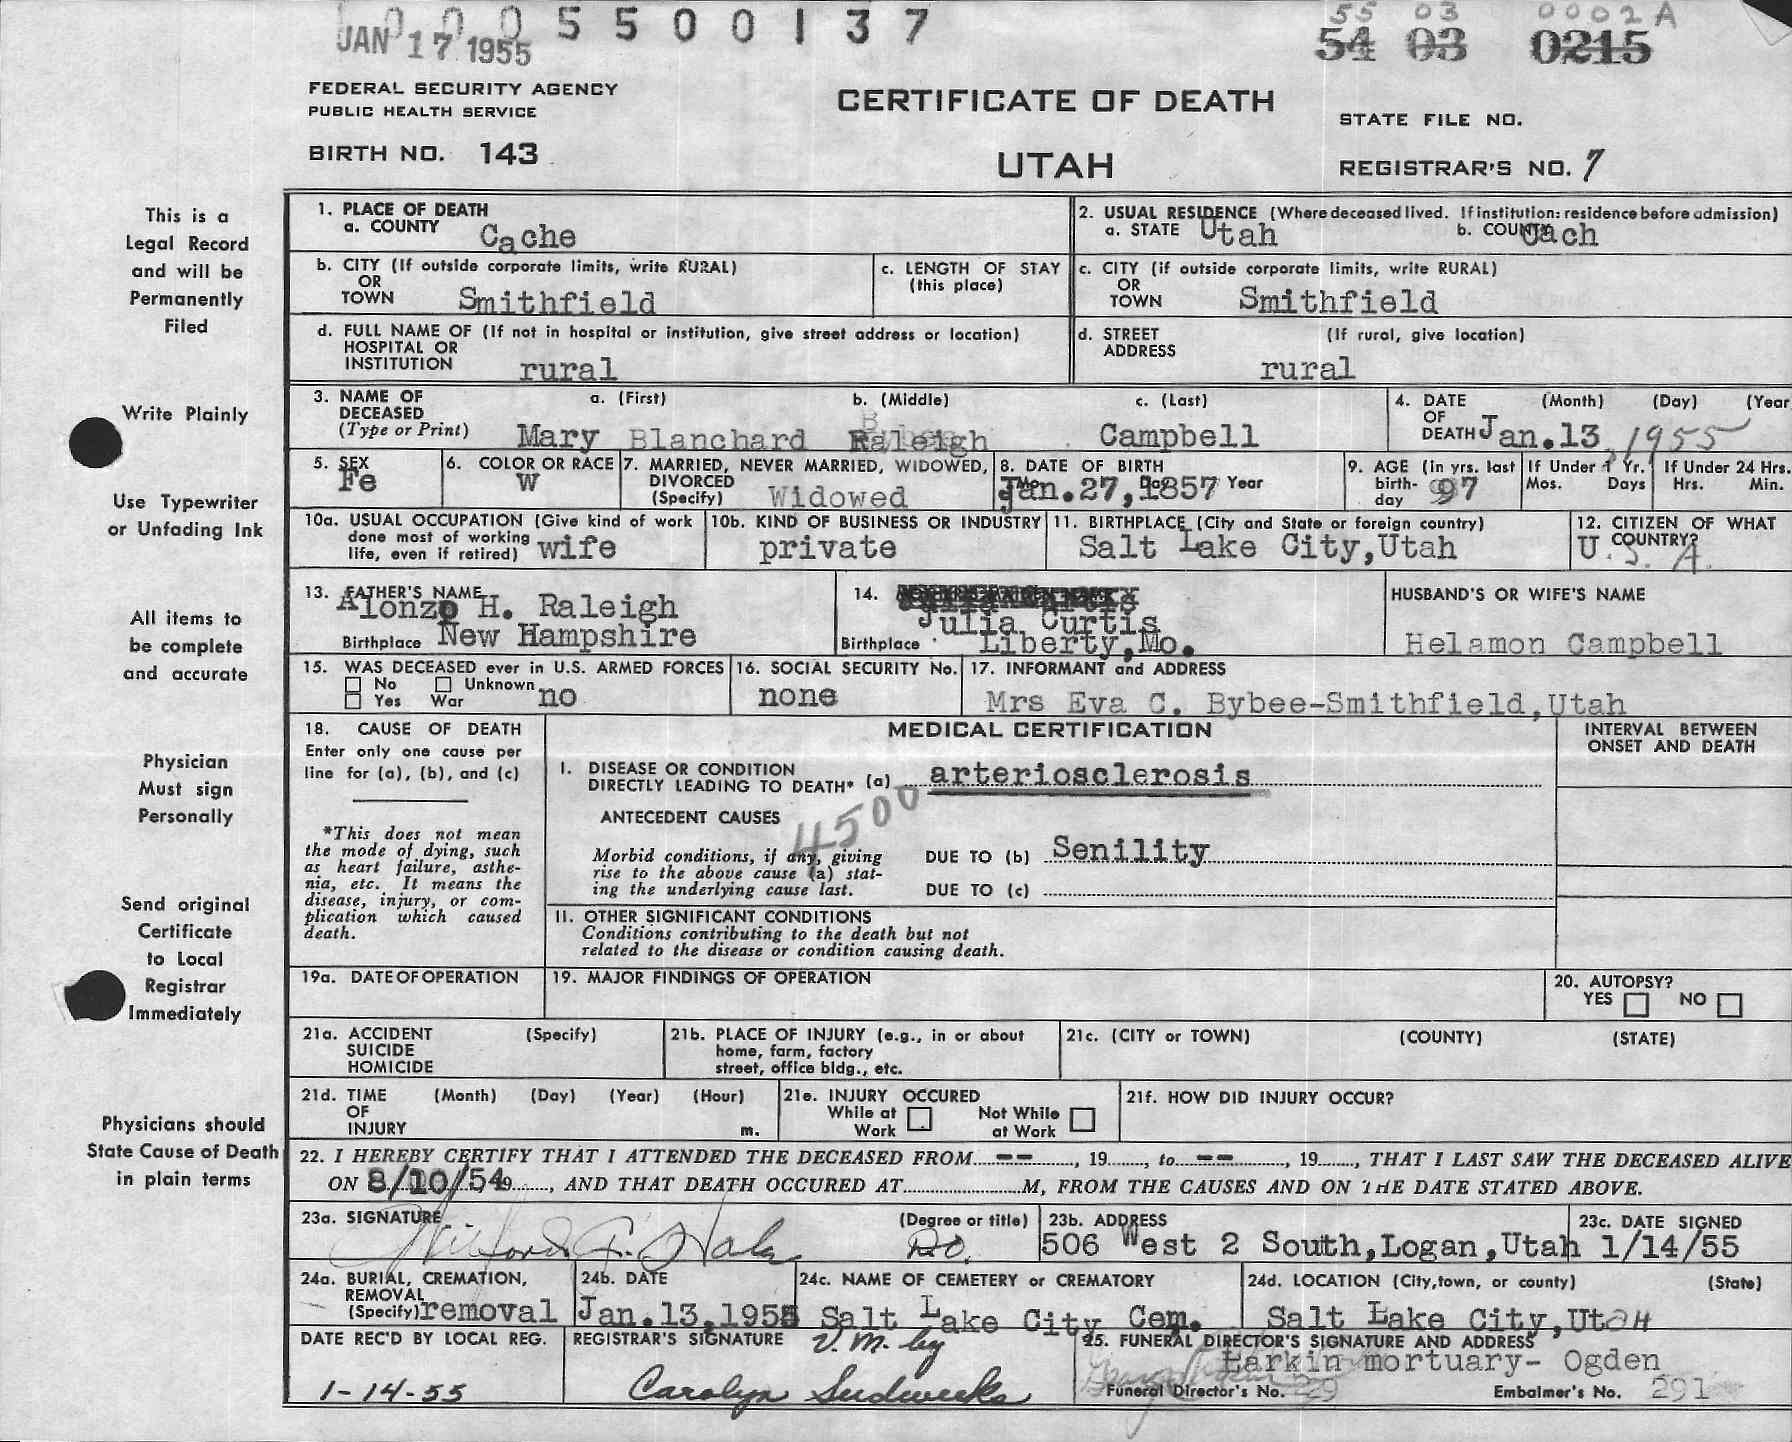 0005500137
JAN 17 1955
55 03 0002A
54 03 0215
FEDERAL SECURITY AGENCY
PUBLIC HEALTH SERVICE
CERTIFICATE OF DEATH
STATE FILE NO.
BIRTH NO. 143
UTAH
REGISTRAR'S NO. 7
This is a
Legal Record
and will be
Permanently
Filed
Write Plainly
Use Typewriter
or Unfading Ink
All items to
be complete
and accurate
Physician
Must sign
Personally
Send original
Certificate
to Local
Registrar
Immediately
Physicians should
State Cause of Death
in plain terms
1. PLACE OF DEATH
a. COUNTY Cache
2. USUAL RESIDENCE (Where deceased lived. If institution: residence before admission)
a. STATE Utah b. COUNTY Cach
b. CITY (If outside corporate limits, write RURAL)
OR
TOWN Smithfield
c. LENGTH OF STAY
(this place)
c. CITY (if outside corporate limits, write RURAL)
OR
TOWN Smithfield
d. FULL NAME OF (If not in hospital or institution, give street address or location)
HOSPITAL OR
INSTITUTION rural
d. STREET (If rural, give location)
ADDRESS
rural
3. NAME OF DECEASED
(Type or Print)
a. (First) b. (Middle) c. (Last)
Mary Blanchard Raleigh Campbell
4. DATE (Month) (Day) (Year
OF
DEATH Jan. 13, 1955
5. SEX
Fe
6. COLOR OR RACE
W
7. MARRIED, NEVER MARRIED, WIDOWED,
DIVORCED
(Specify) Widowed
8. DATE OF BIRTH
Mo. Day Year
Jan. 27, 1857
9. AGE (in yrs. last
birth-
day 97
If Under 1 Yr.
Mos. Days
If Under 24 Hrs.
Hrs. Min.
10a. USUAL OCCUPATION (Give kind of work
done most of working
life, even if retired) wife
10b. KIND OF BUSINESS OR INDUSTRY
private
11. BIRTHPLACE (City and State or foreign country)
Salt Lake City, Utah
12. CITIZEN OF WHAT
COUNTRY?
U. S. A.
13. FATHER'S NAME
Alonzo H. Raleigh
Birthplace New Hampshire
14.
Julia Curtis
Birthplace Liberty, Mo.
HUSBAND'S OR WIFE'S NAME
Helamon Campbell
15. WAS DECEASED ever in U.S. ARMED FORCES
No Unknown no
Yes War
16. SOCIAL SECURITY No.
none
17. INFORMANT and ADDRESS
Mrs Eva C. Bybee-Smithfield, Utah
18. CAUSE OF DEATH
Enter only one cause per
line for (a), (b), and (c)
*This does not mean
the mode of dying, such
as heart failure, asthe-
nia, etc. It means the
disease, injury, or com-
plication which caused
death.
MEDICAL CERTIFICATION
INTERVAL BETWEEN
ONSET AND DEATH
I. DISEASE OR CONDITION
DIRECTLY LEADING TO DEATH* (a) arteriosclerosis
4500
ANTECEDENT CAUSES
Morbid conditions, if any, giving
rise to the above cause (a) stat-
ing the underlying cause last.
DUE TO (b) Senility
DUE TO (c)
II. OTHER SIGNIFICANT CONDITIONS
Conditions contributing to the death but not
related to the disease or condition causing death.
19a. DATE OF OPERATION
19. MAJOR FINDINGS OF OPERATION
20. AUTOPSY?
YES NO
21a. ACCIDENT (Specify)
SUICIDE
HOMICIDE
21b. PLACE OF INJURY (e.g., in or about
home, farm, factory
street, office bldg., etc.
21c. (CITY or TOWN) (COUNTY) (STATE)
21d. TIME (Month) (Day) (Year) (Hour)
OF
INJURY m.
21e. INJURY OCCURED
While at Work Not While at Work
21f. HOW DID INJURY OCCUR?
22. I HEREBY CERTIFY THAT I ATTENDED THE DECEASED FROM -- , 19 , to -- , 19 , THAT I LAST SAW THE DECEASED ALIVE
ON 8/10/54 19 , AND THAT DEATH OCCURED AT M, FROM THE CAUSES AND ON THE DATE STATED ABOVE.
23a. SIGNATURE (Degree or title)
D.O.
23b. ADDRESS
506 West 2 South, Logan, Utah
23c. DATE SIGNED
1/14/55
24a. BURIAL, CREMATION,
REMOVAL
(Specify) removal
24b. DATE
Jan. 13, 1955
24c. NAME OF CEMETERY or CREMATORY
Salt Lake City Cem.
24d. LOCATION (City, town, or county) (State)
Salt Lake City, Utah
DATE REC'D BY LOCAL REG.
1-14-55
REGISTRAR'S SIGNATURE V. M. by
Carolyn Sudweeks
25. FUNERAL DIRECTOR'S SIGNATURE AND ADDRESS
Larkin mortuary- Ogden
Funeral Director's No. 29 Embalmer's No. 291